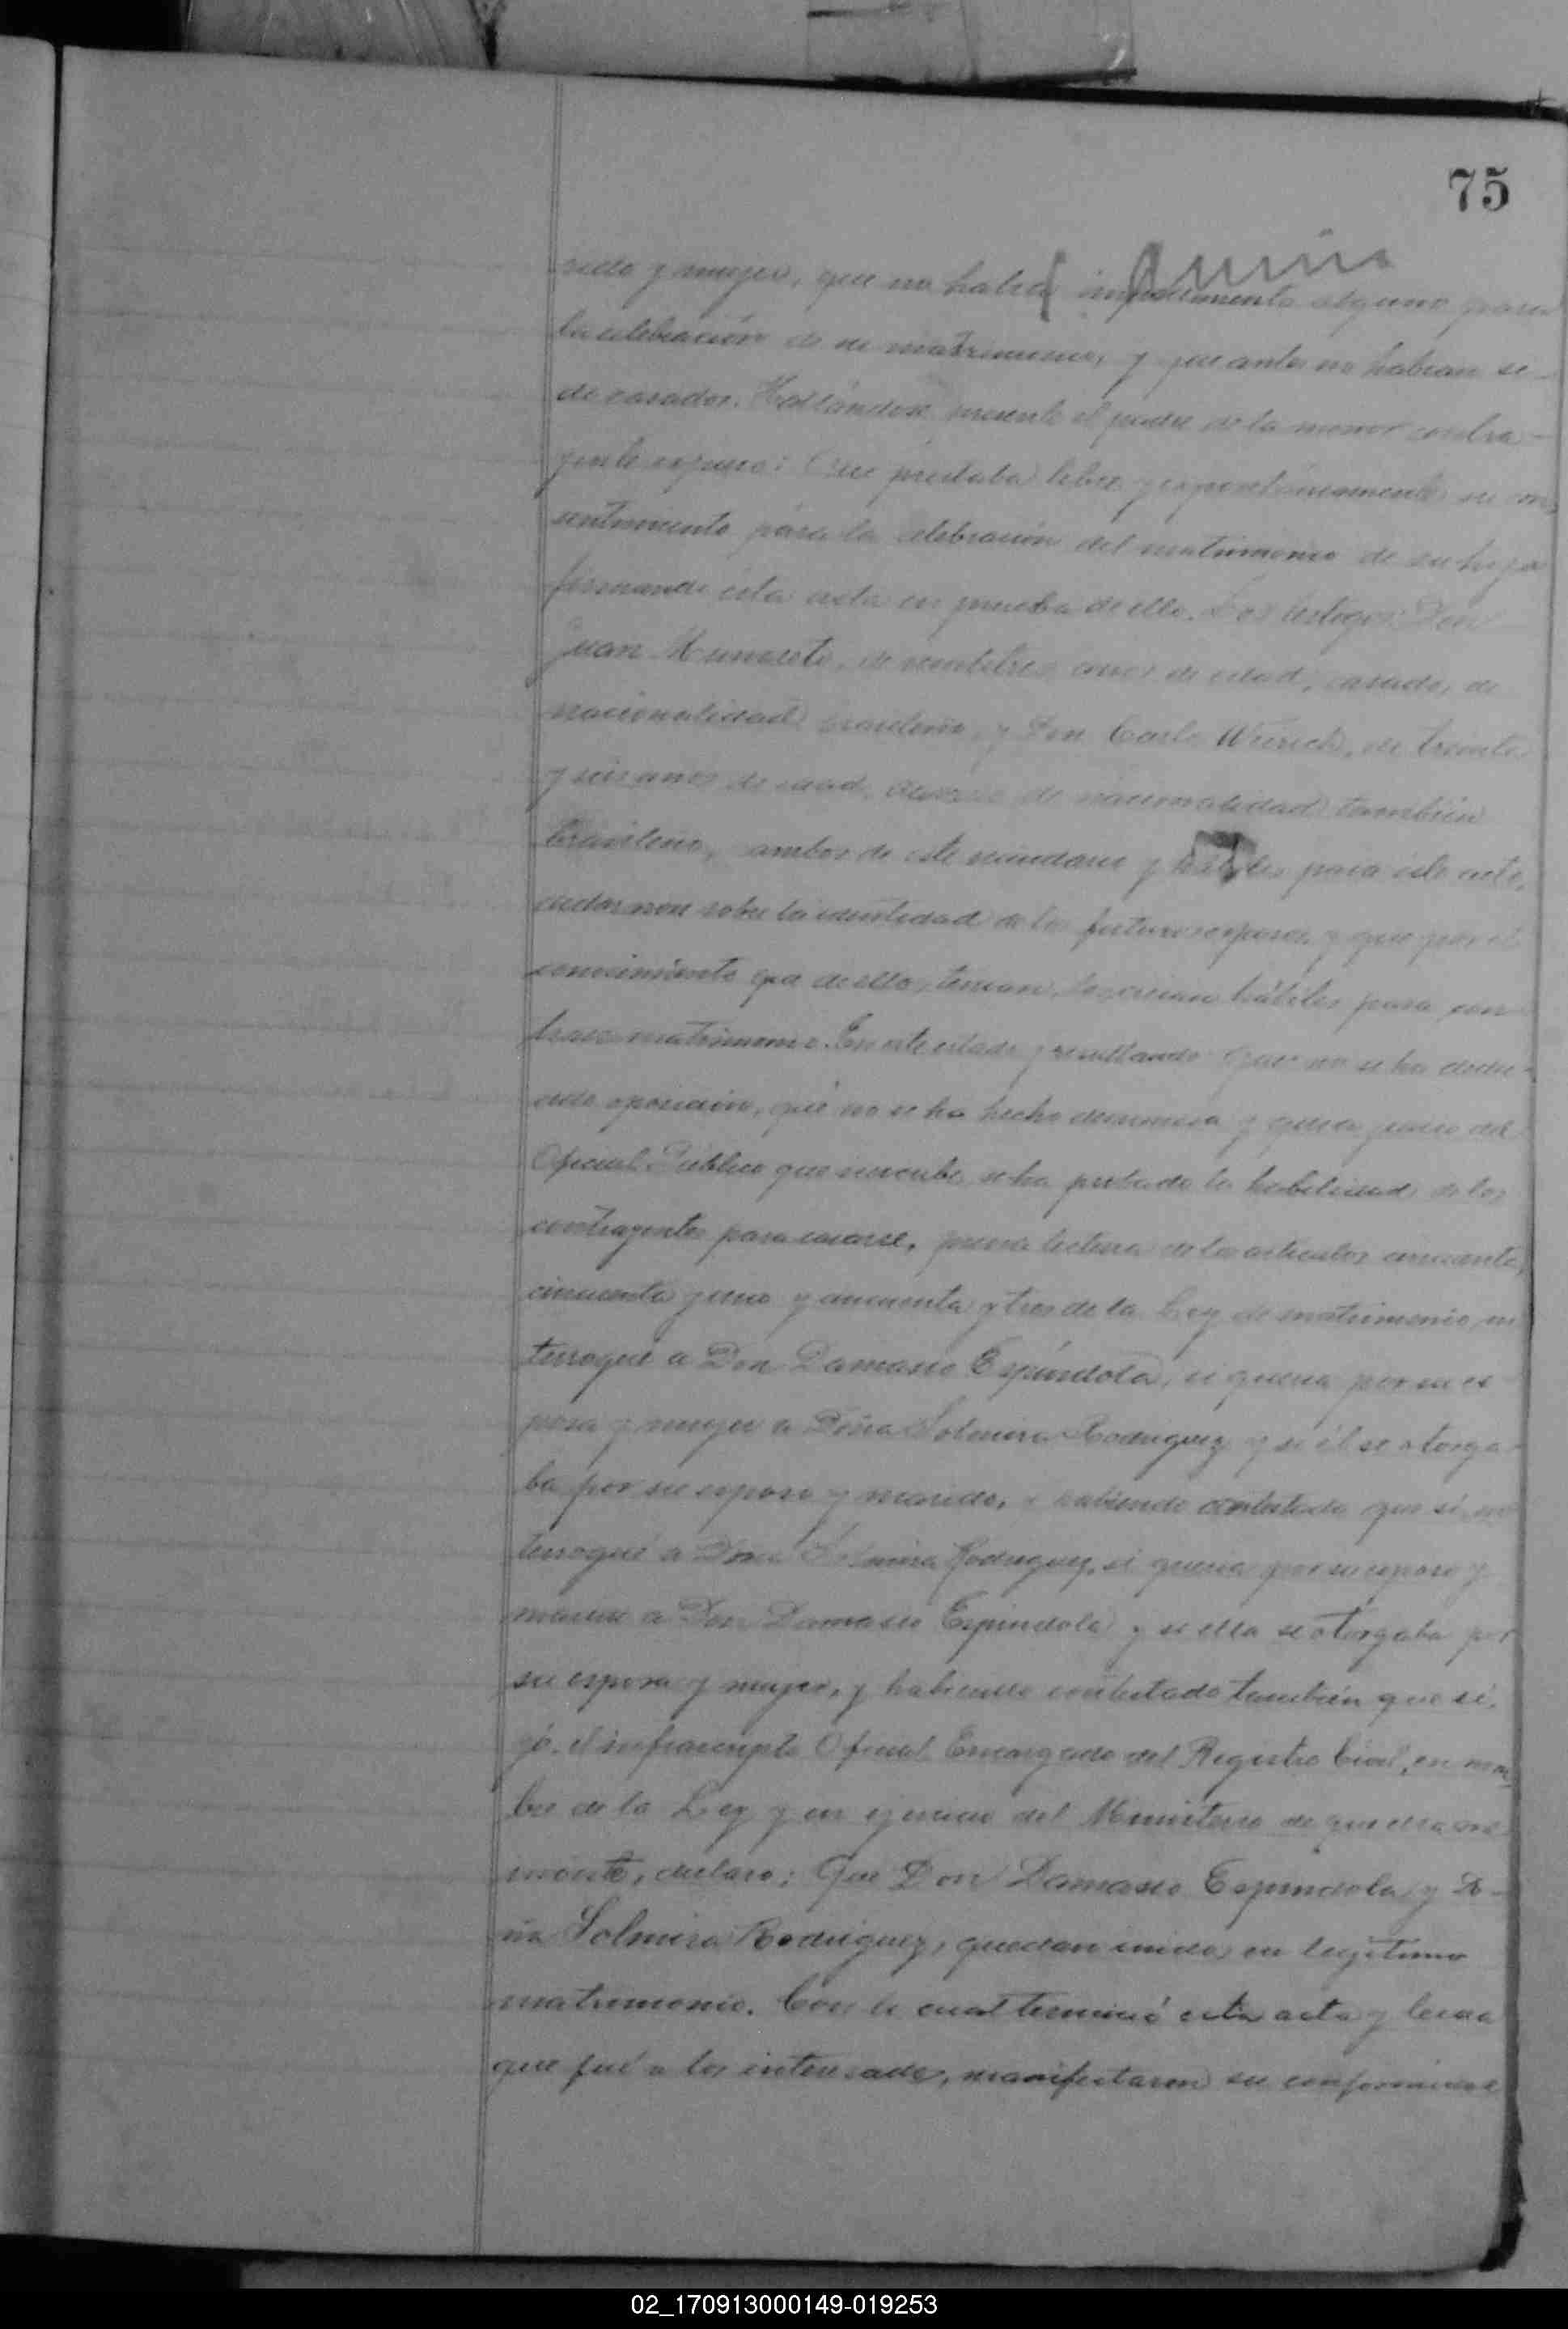 75
rido y mujer, que no había impedimento alguno para
la celebración de su matrimonio, y que antes no habían si-
do casados. Hallándose presente el padre de la menor contra-
yente expuso: Que prestaba libre y espontáneamente su con-
sentimiento para la celebración del matrimonio de su hija
firmando esta acta en prueba de ello. Los testigos: Don
Juan de años de edad, casado, de
nacionalidad brasileño, y Don Carlos de treinta
y seis años de edad, de nacionalidad también
brasileño, ambos de este vecindario y hábiles para este acto,
declararon sobre la identidad de los futuros esposos y que por el
conocimiento que de ellos tenían, los creían hábiles para con-
traer matrimonio. En este estado y resultando que no se ha dedu-
cido oposición, que no se ha hecho denuncia y que a juicio del
Oficial Público que suscribe, se ha probado la habilidad de los
contrayentes para casarse, previa lectura de los artículos cincuenta,
cincuenta y uno y cincuenta y tres de la Ley de matrimonio, in
terrogué a Don Damasio Espíndola, si quería por su es
posa y mujer a Doña Solmira Rodriguez y si él se otorga-
ba por su esposo y marido, y habiendo contestado que sí, in
terrogué a Doña Solmira Rodriguez, si quería por su esposo y
marido a Don Damasio Espindola y si ella se otorgaba por
su esposa y mujer, y habiendo contestado también que sí,
yó, el infrascripto Oficial Encargado del Registro Civil, en nom
bre de la Ley y en ejercicio del Ministerio de que ella me
inviste, declaro: Que Don Damasio Espindola y Do-
ña Solmira Rodriguez, quedan unidos en legítimo
matrimonio. Con lo cual terminó esta acta y leida
que fué a los interesados, manifestaron su conformidad
02_170913000149-019253